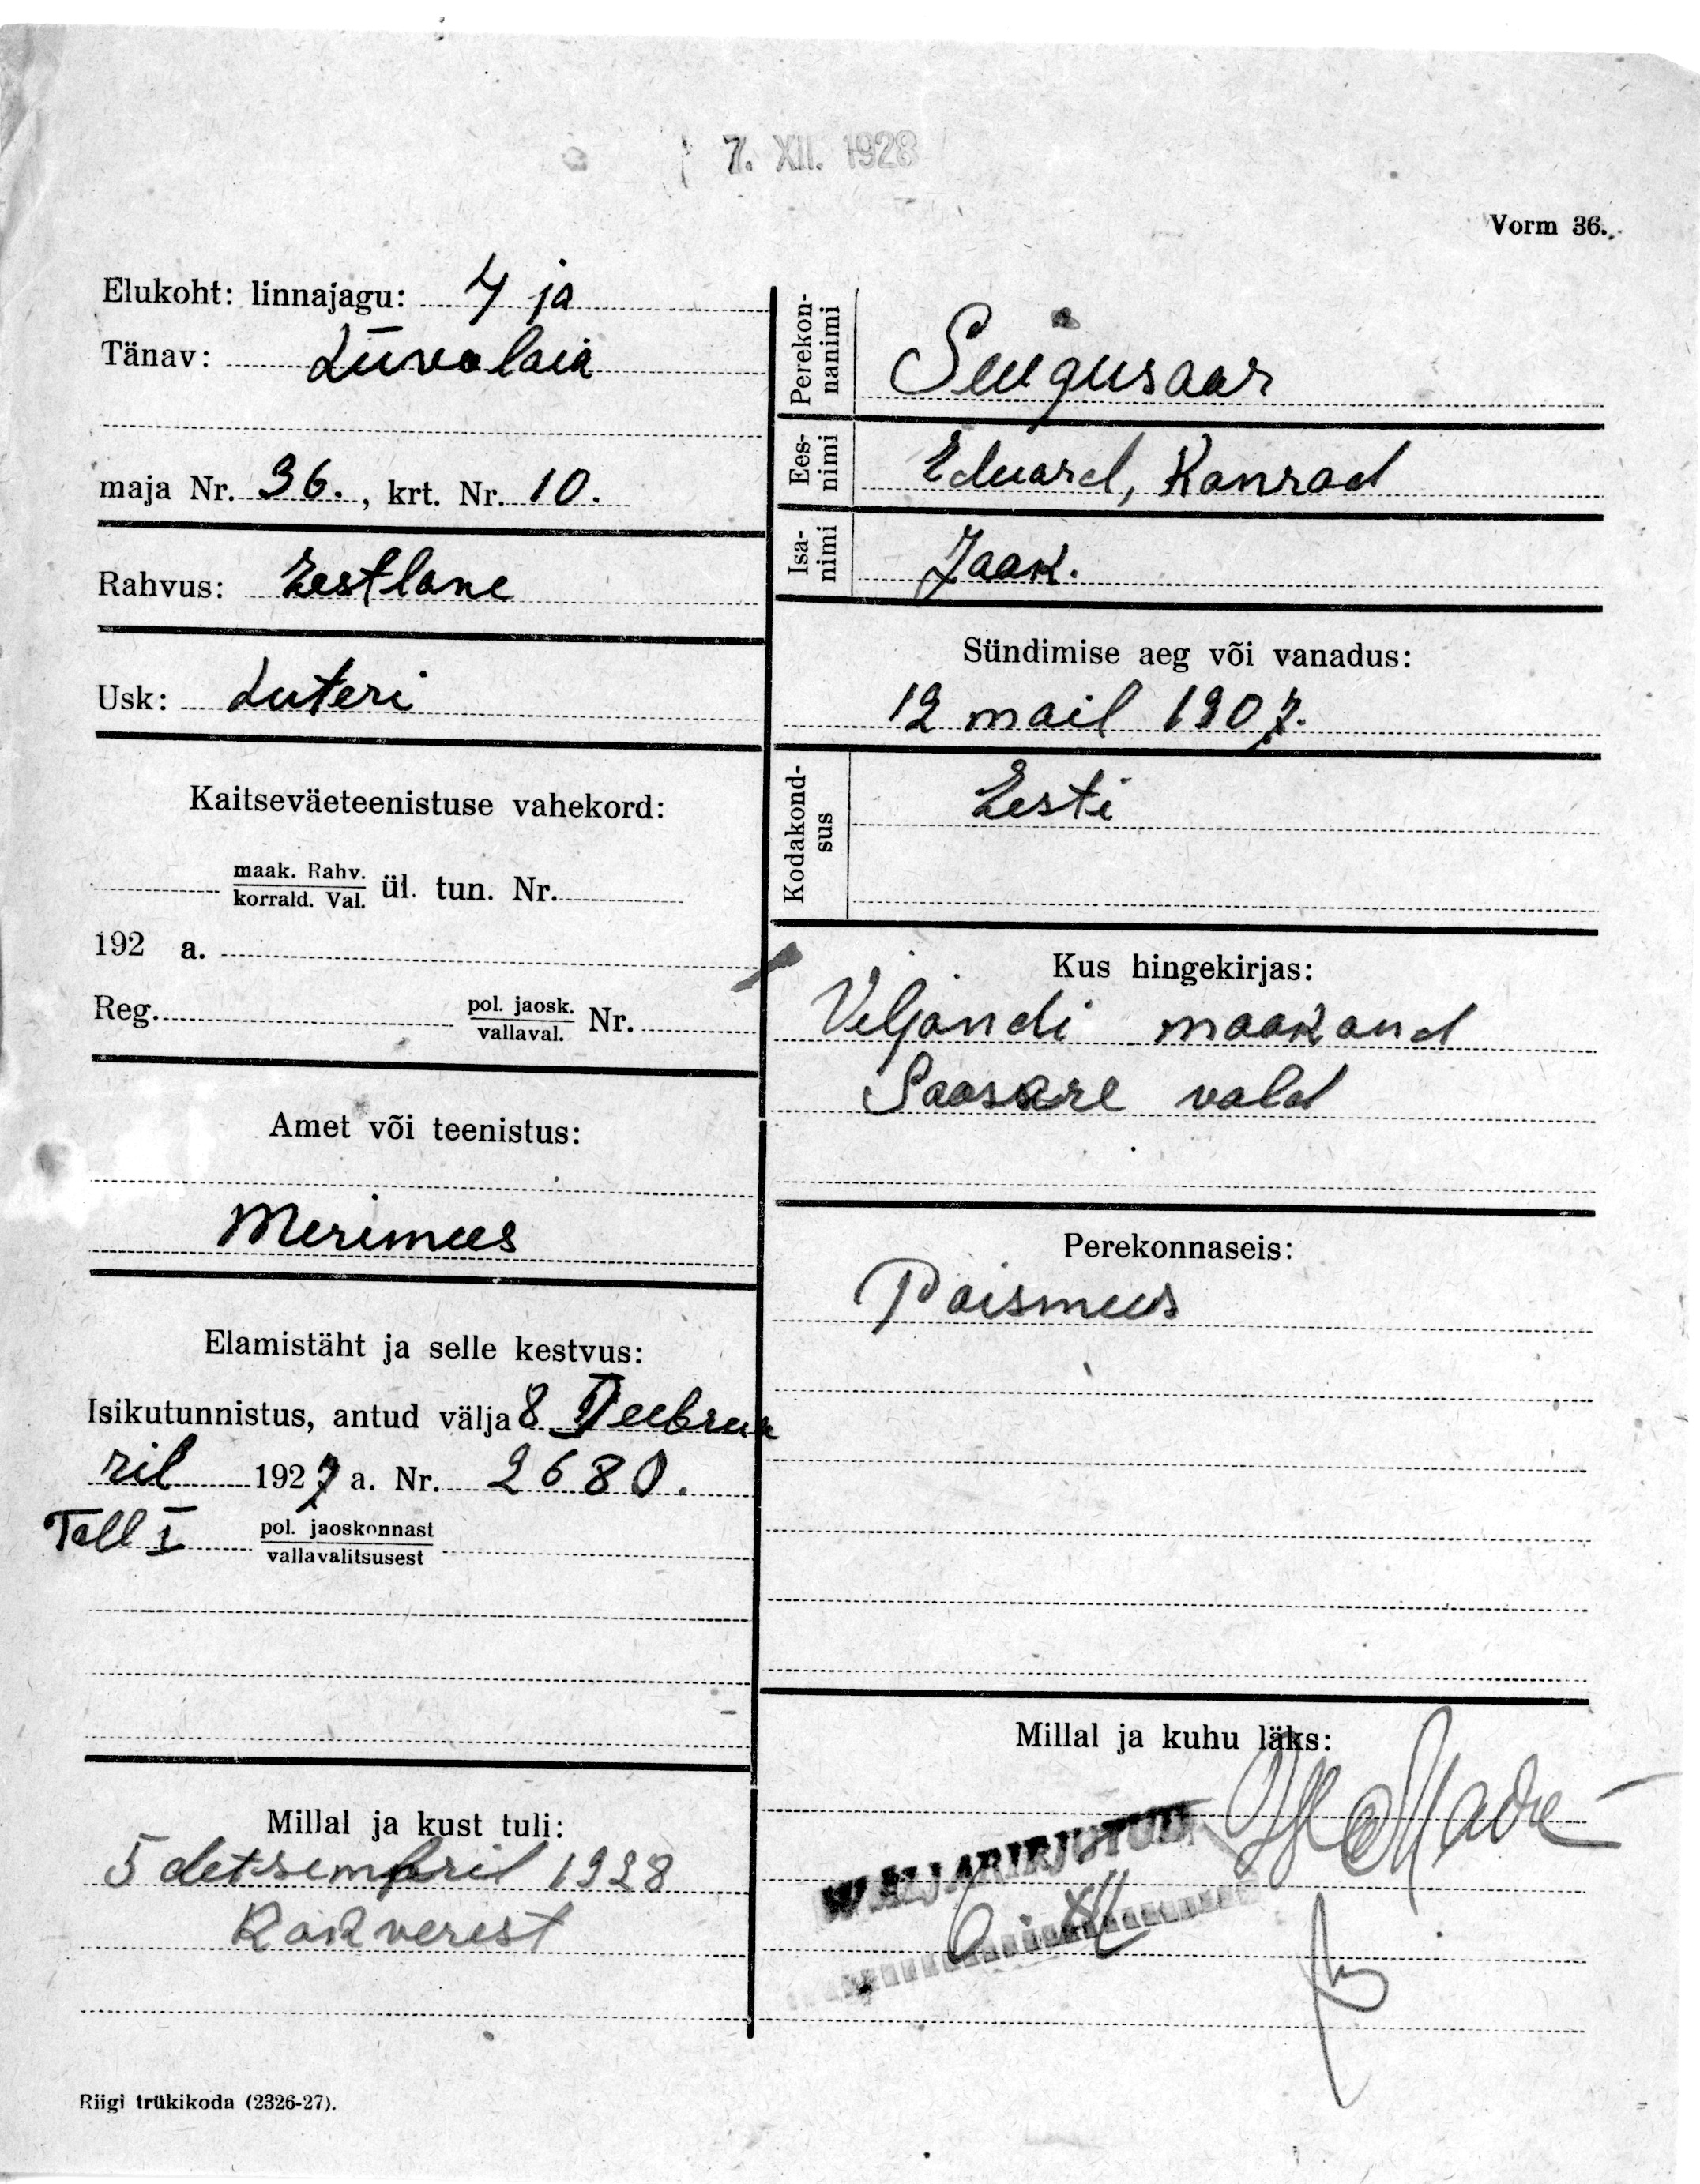 7. XII. 1928
Vorm 36.
Elukoht: linnajagu: 4 ja
Tänav: Liivalaia
maja Nr. 36., krt. Nr. 10.
Rahvus: Eestlane
Usk: Luteri
Kaitseväeteenistuse vahekord:
maak. Rahv.
korrald. Val. ül. tun. Nr.
192 a.
Reg. pol. jaosk.
vallaval. Nr.
Amet või teenistus:
Merimees
Elamistäht ja selle kestvus:
Isikutunnistus, antud välja 8 Veebrua
ril 1927 a. Nr. 2680.
Tall I pol. jaoskonnast
vallavalitsusest
Millal ja kust tuli:
5 detsembril 1928
Rakverest
Perekon-
nanimi
Suigusaar
Ees-
nimi
Eduard, Konrad
Isa-
nimi
Jaak.
Sündimise aeg või vanadus:
12 mail 1907.
Kodakond-
sus
Eesti
Kus hingekirjas:
Viljandi maakond
Soosaare vald
Perekonnaseis:
Poismees
Millal ja kuhu läks:
WÄLJAKIRJUTUD
6 XII
Riigi trükikoda (2326-27).